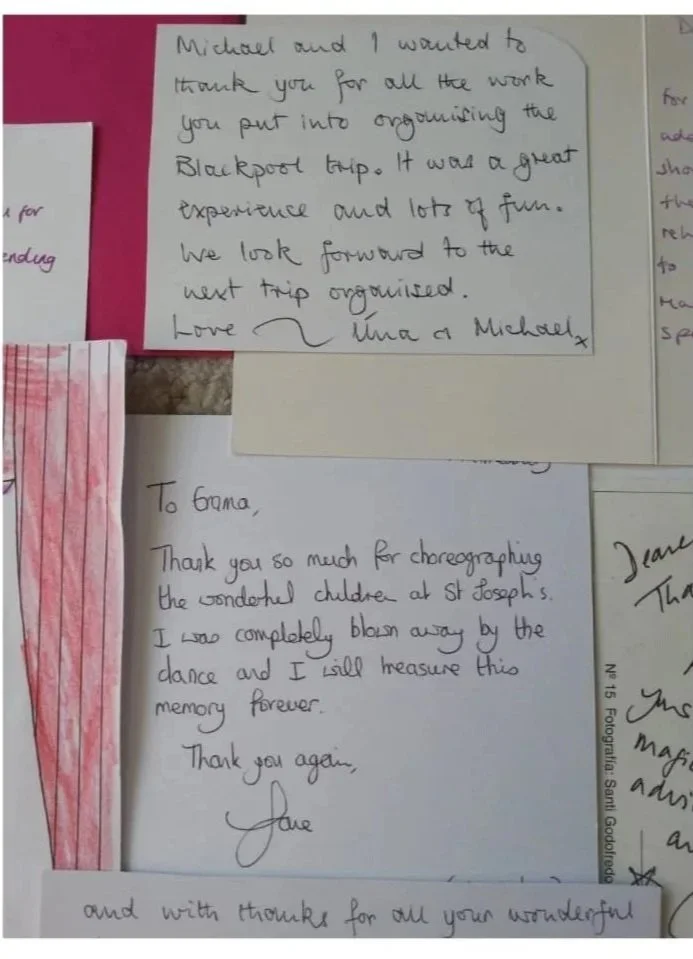 Michael and I wanted to
thank you for all the work
you put into organising the
Blackpool trip. It was a great
experience and lots of fun.
We look forward to the
next trip organised.
Love Úna & Michael x
for
ending
for
sho
the
reh
to
Ma
spe
To Grama,
Thank you so much for choreographing
the wonderful children at St Joseph's.
I was completely blown away by the
dance and I will measure this
memory forever.
Thank you again,
Jane
Deare
Tha
magi
advi
an
Nº 15 Fotografía: Santi Godofredo
and with thanks for all your wonderful